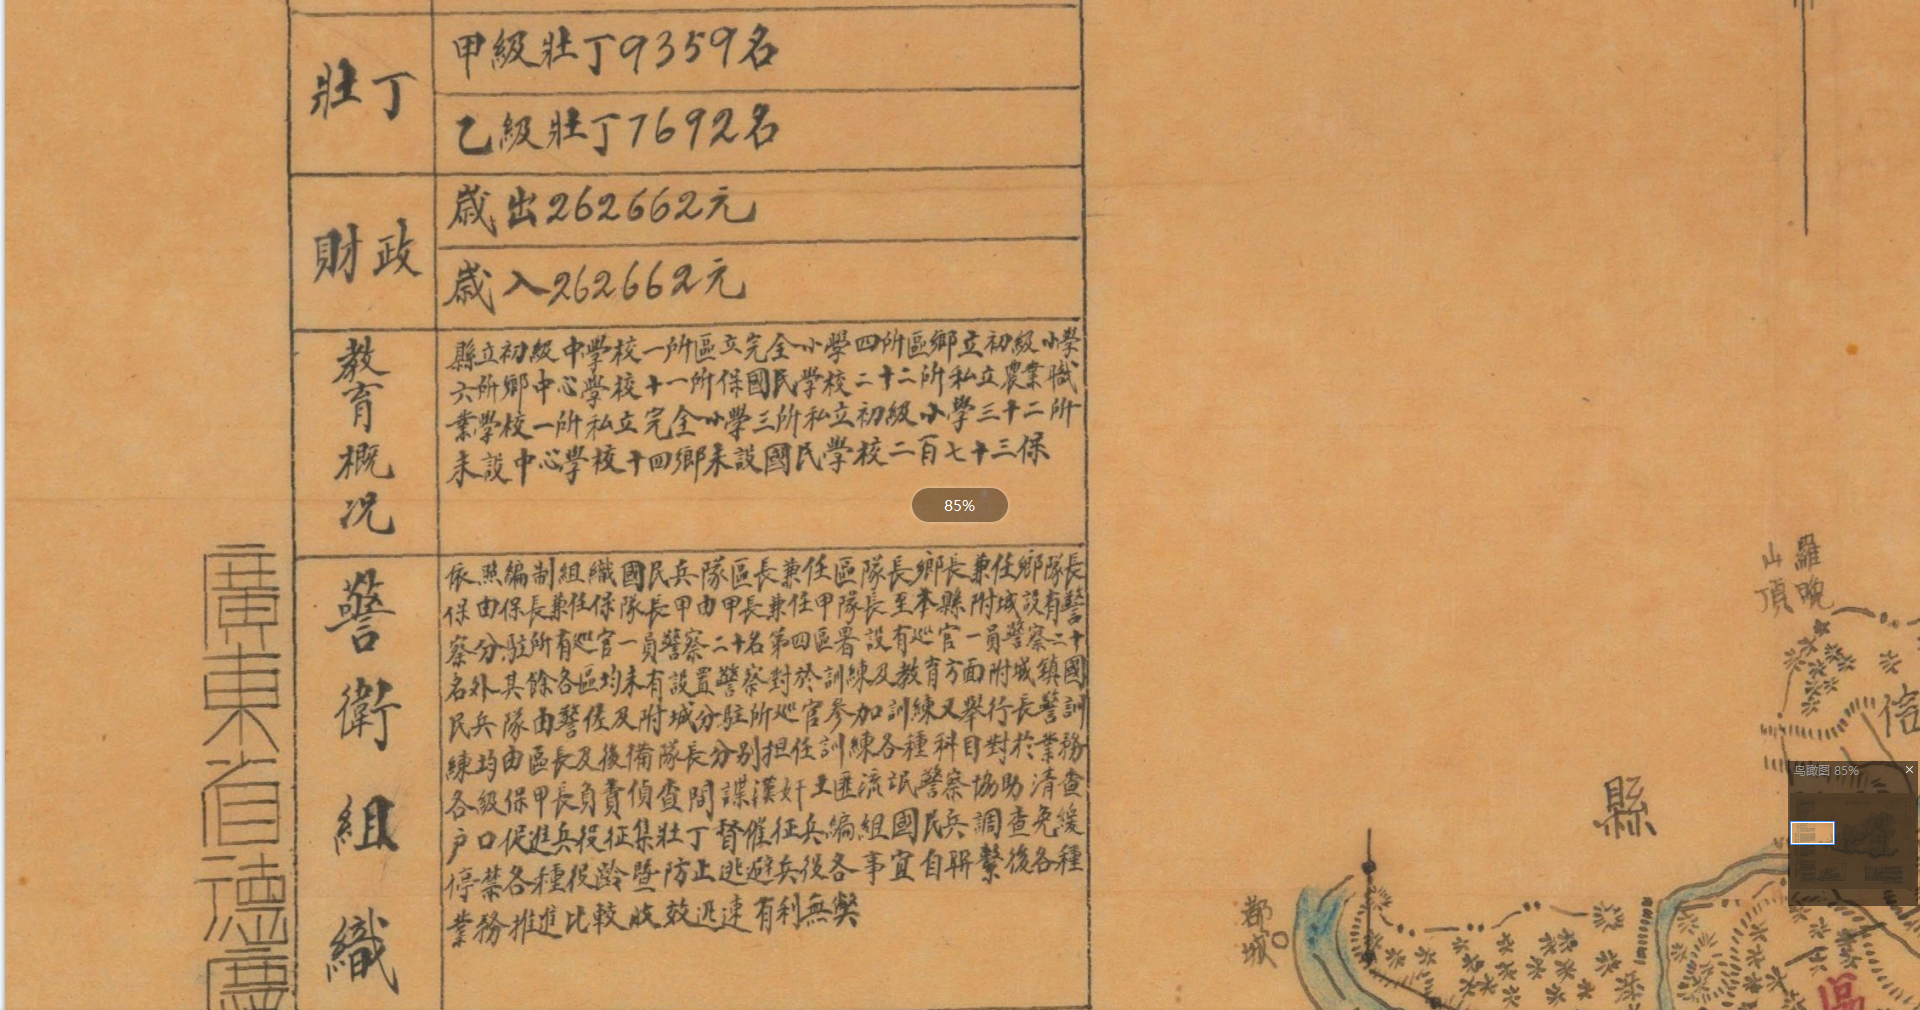 壯丁
甲級壯丁9359名
乙級壯丁7692名
財政
歳出262662元
歳入262662元
教育概況
縣立初級中学校一所區立完全小學四所區鄉立初級小學
六所鄉中心學校十一所保國民学校二十二所私立農業職
業學校一所私立完全小學三所私立初級小學三十二所
未設中心學校十四鄉未設國民學校二百七十三保
警衛組織
依照編制組織國民兵隊區長兼任區隊長鄉長兼任鄉隊長
保由保長兼任保隊長甲由甲長兼任甲隊長至本縣附城設有警
察分駐所有巡官一員警察二十名第四區署設有巡官一員警察二十
名外其餘各區均未有設置警察對於訓練及教育方面附城鎮國
民兵隊由警佐及附城分駐所巡官参加訓練又舉行長警訓
練均由區長及後備隊長分别担任訓練各種科目對於業務
各級保甲長負責偵查間諜漢奸土匪流氓警察協助清查
户口促進兵役征集壯丁督催征兵編組國民兵調查免緩
停禁各種役齡暨防止逃避兵役各事宜自聨繫後各種
業務推進比較收效迅速有利無弊
廣東省德慶
85%
羅晚
山頂
信
縣
都城
區
鸟瞰图 85%